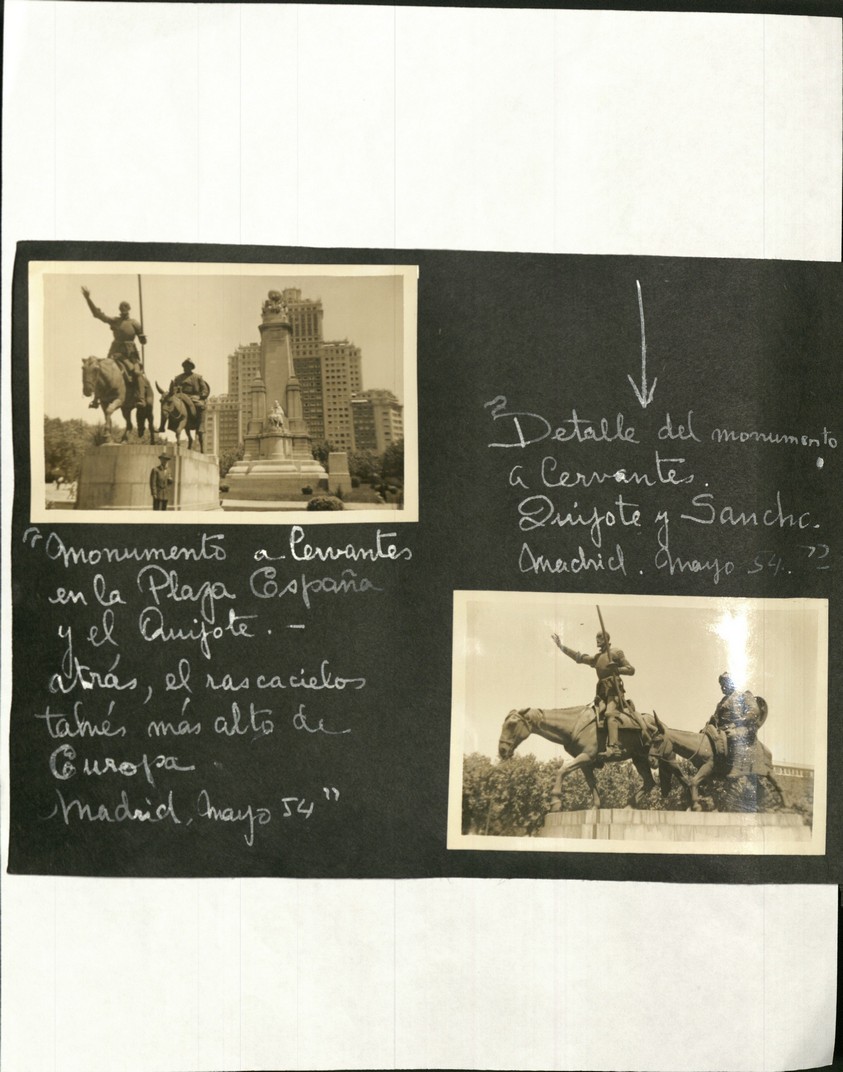 "Monumento a Cervantes
en la Plaza España
y el Quijote. –
atrás, el rascacielos
talvés más alto de
Europa
Madrid, Mayo 54"
"Detalle del monumento
a Cervantes.
Quijote y Sancho.
Madrid. Mayo 54."